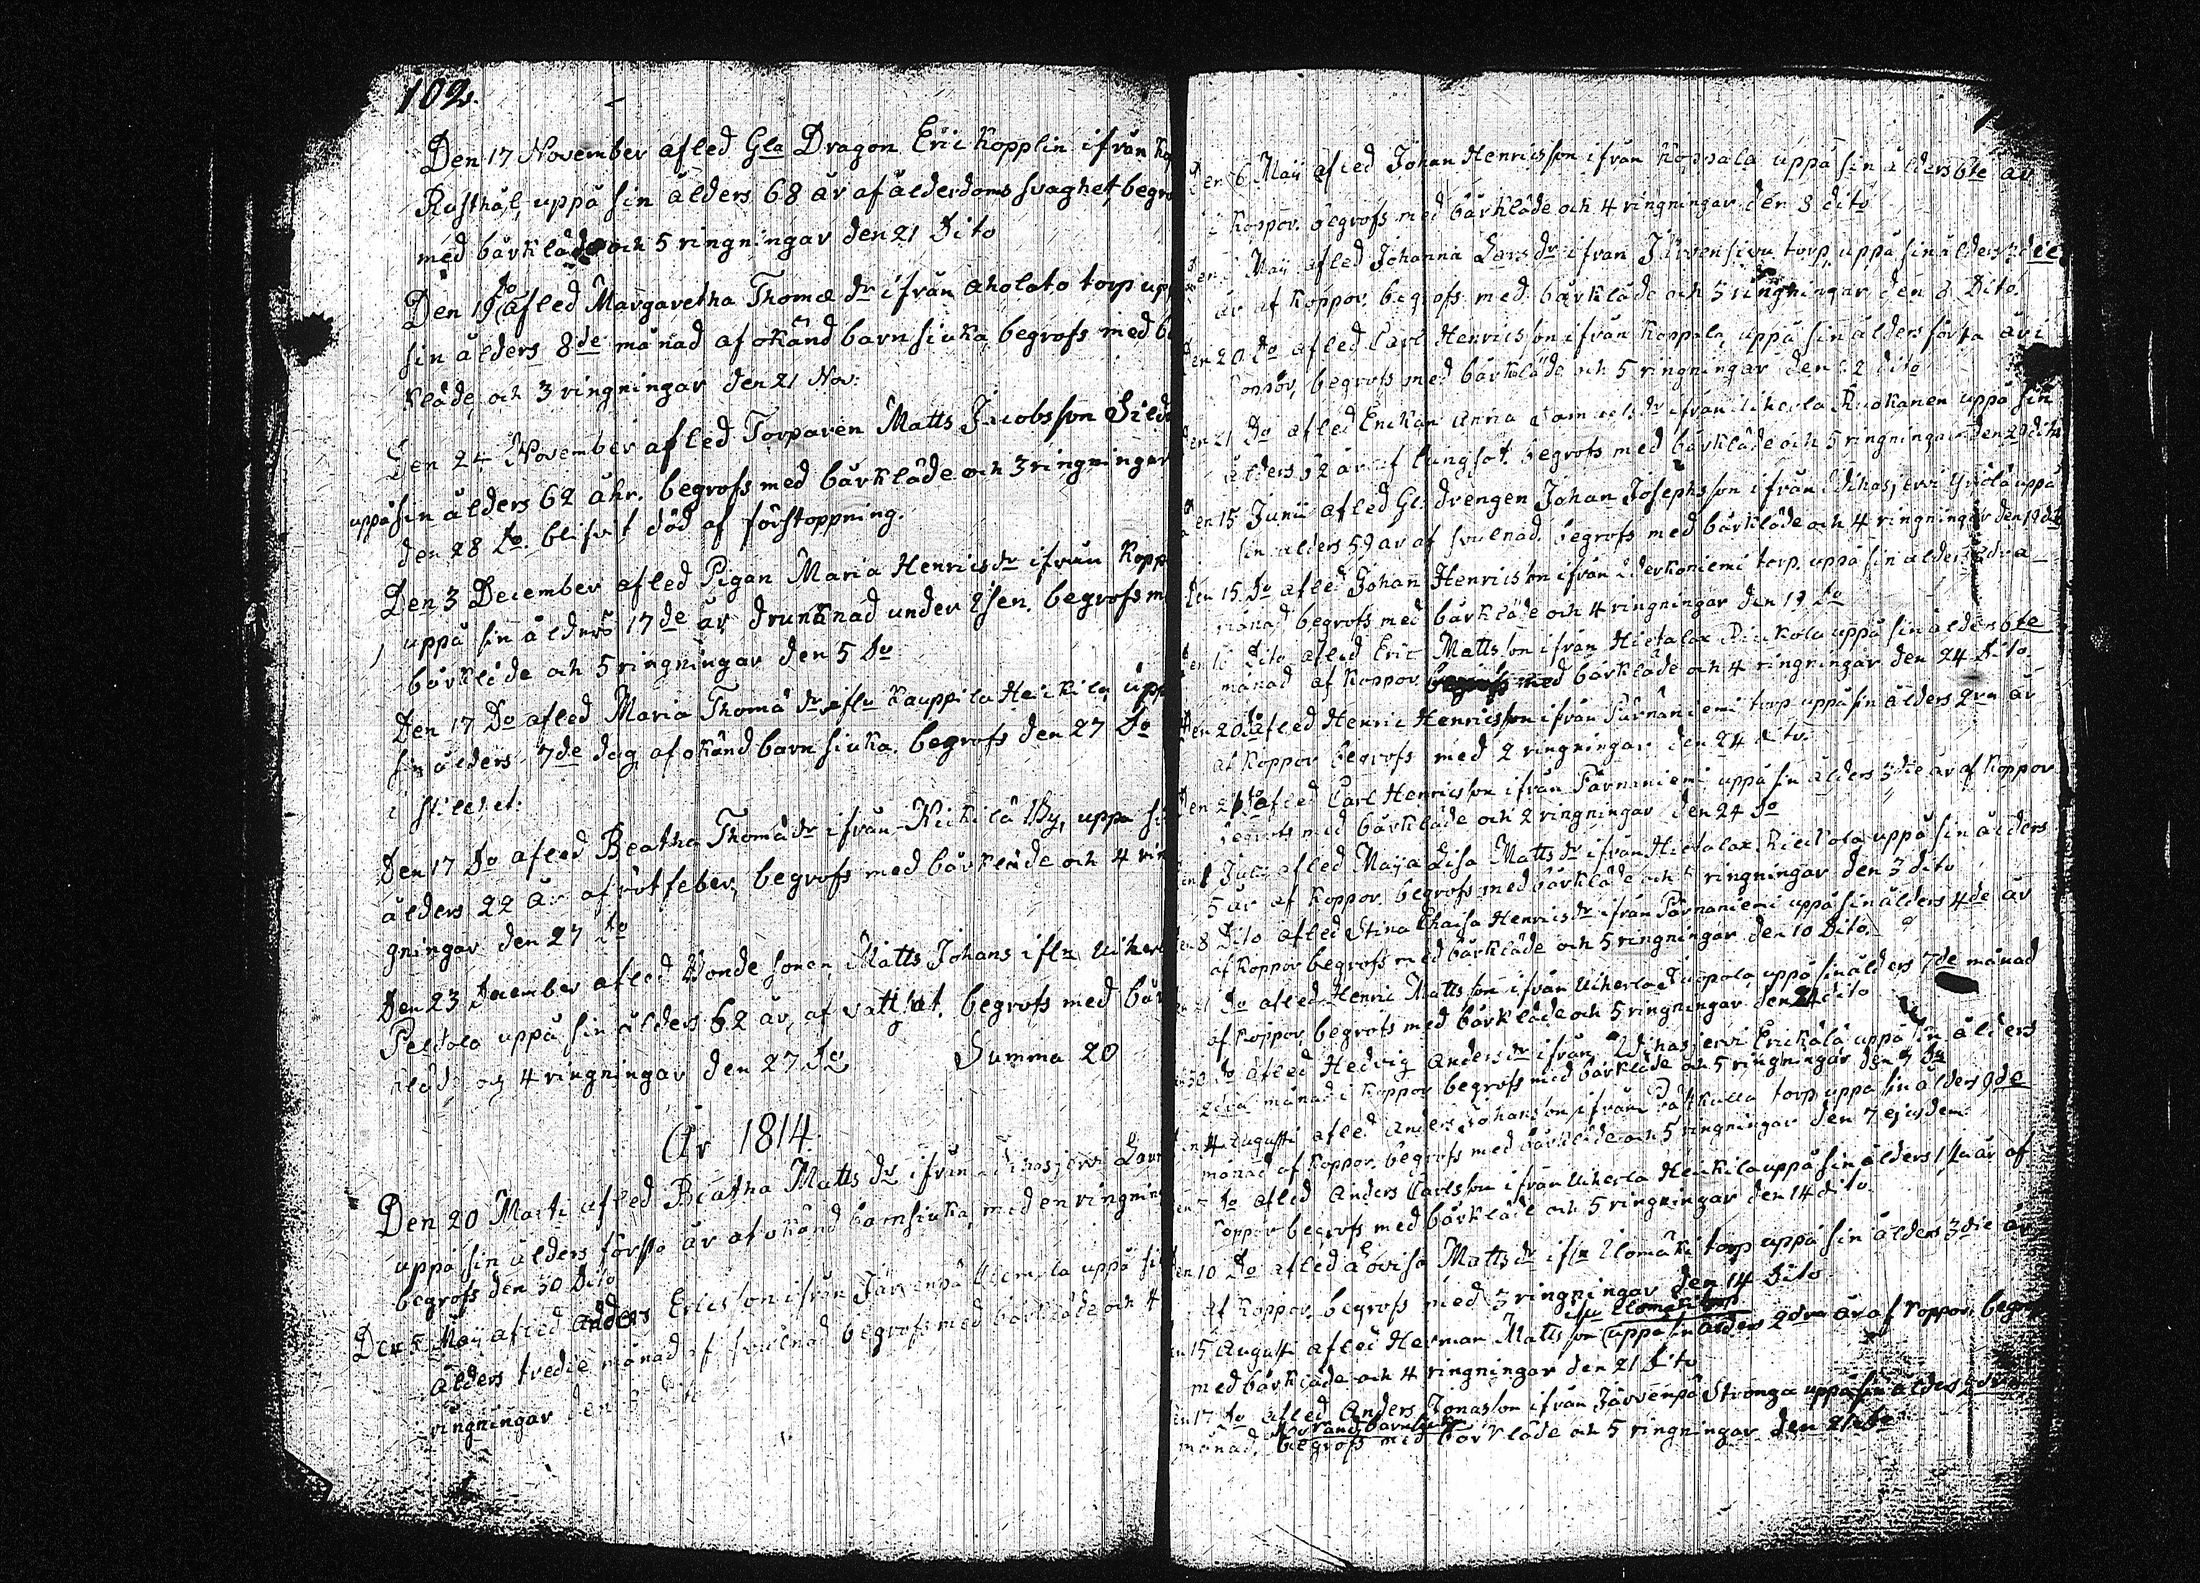 102.
Den 17 November afled Gla Dragon Eric Kopplin ifrån
Rusthål, uppå sin ålders 68 år af ålderdoms svaghet, begro
med bårkläde och 5 ringningar den 21 Dito
Den 19 Do afled Margaretha Thomæ dr ifrån Aholato torp up
sin ålders 8de månad af okänd barnsiuka, begrofs med b
kläde, och 3 ringningar den 21 Nov:
Den 24 November afled Torparen Matts Jacobsson
uppå sin ålders 62 åhr. begrofs med bårkläde och 3 ringningar
den 28 Do. blifvit död af förstoppning.
Den 3 December afled Pigan Maria Henricsdr ifrån Kopp
uppå sin ålders 17de år, drunknad under isen. begrofs m
bårkläde och 5 ringningar den 5 Do
Den 17 Do afled Maria Thomædr ifrn Kauppila Heickilä, upp
sin ålders 7de dag af okänd barnsiuka. begrofs den 27 Do
i stilehet.
Den 17 Do afled Beatha Thomædr ifrån Heickilä By, uppå si
ålders 22 år af rötfeber, begrofs med bårkläde och 4 rin
gningar den 27 Do
Den 23 December afled Bonde sonen Matts Johans ifrn Uikerl
Peldola uppå sin ålders 62 år, af vattsot. begrofs med bår
kläde och 4 ringningar den 27 Do
Summa 20
År 1814.
Den 20 Marti afled Beatha Matts dr ifrån
uppå sin ålders första år af okänd barnsiuka, med en ringnin
begrofs den 30 Dito
Den 5 Maij afled Anders Ericsson ifrån Järvenpä uppå si
ålders tredie månad af svulnad begrofs med bårkläde och 4
ringningar den
Den 6 Maij afled Johan Henricsson ifrån Koppala uppå sin ålders 6te år
i Koppor. begrofs med bårkläde och 4 ringningar den 8 dito
Den Maij afled Johanna Larsdr ifrån Järvensivu torp, uppå sin ålders
år af Koppor. begrofs med bårkläde och 5 ringningar den 8 Dito.
Den 20 Do afled Carl Henricsson ifrån Koppala, uppå sin ålders första år i
Koppor, begrofs med bårkläde och 5 ringningar den 22 dito
Den 21 Do afled Enckan Anna Samuelsdr ifrån Uikerla Ruokanen uppå sin
ålders 52 år af lungsot. begrofs med bårkläde och 5 ringningar den 29 dito
Den 15 Junii afled Gl. drengen Johan Josephsson ifrån Yriölä uppå
sin ålders 59 år af svulnad. begrofs med bårkläde och 4 ringningar den 19 dito
Den 15 Do afled Johan Henricsson ifrån torp, uppå sin ålders 2dra
månad begrofs med bårkläde och 4 ringningar den 19 Do
Den 16 Dito afled Eric Mattsson ifrån Hietalax Rieckola uppå sin ålders 6te
månad af Koppor begrofs med bårkläde och 4 ringningar den 24 Dito.
Den 20 Do afled Henric Henricsson ifrån Pärnäniemi torp uppå sin ålders 2dra år
af Koppor begrofs med 2 ringningar den 24 dito.
Den 21 Do afled Carl Henricsson ifrån Pärnäniemi uppå sin ålders 3die år af Koppor
begrofs med bårkläde och 2 ringningar den 24 Do
Den 1 Julii afled Maija Lisa Matts dr ifrån Hietalax Rieckola uppå sin ålders
5 år af Koppor. begrofs med bårkläde och 5 ringningar den 3 dito
Den 8 Dito afled Stina Chaisa Henricsdr ifrån Pärnäniemi uppå sin ålders 4de år
af Koppor begrofs med bårkläde och 5 ringningar den 10 Dito.
Den 21 Do afled Henric Mattsson ifrån Uikerla uppå sin ålders 7de månad
af Koppor, begrofs med bårkläde och 5 ringningar den 24 dito
Den 30 Do afled Hedvig Andersdr ifrån Erickälä uppå sin ålders
2dra månad i Koppor begrofs med bårkläde och 5 ringningar den 7 Do
Den 4 Augusti afled Anders Johansson ifrån torp uppå sin ålders 9de
månad af Koppor. begrofs med bårkläde och 5 ringningar den 7 ejusdem
Den Do afled Anders Carlsson ifrån Uikerla Heickilä uppå sin ålders 1sta år af
Koppor begrofs med bårkläde och 5 ringningar den 14 dito.
Den 10 Do afled Lovisa Mattsdr ifrn Ulomäki torp uppå sin ålders 3die år
af Koppor. begrofs med 5 ringningar den 14 Dito
Den 15 Augusti afled Herman Mattsson ifrn Ulomäki torp uppå sin ålders 2dra år af Koppor. begro
med bårkläde och 4 ringningar den 21 Dito
Den 17 Do afled Anders Jonasson ifrån Järvenpä Stronga uppå sin ålders 2dra
månad, barnsiuka begrofs med bårkläde och 5 ringningar den 21 Do